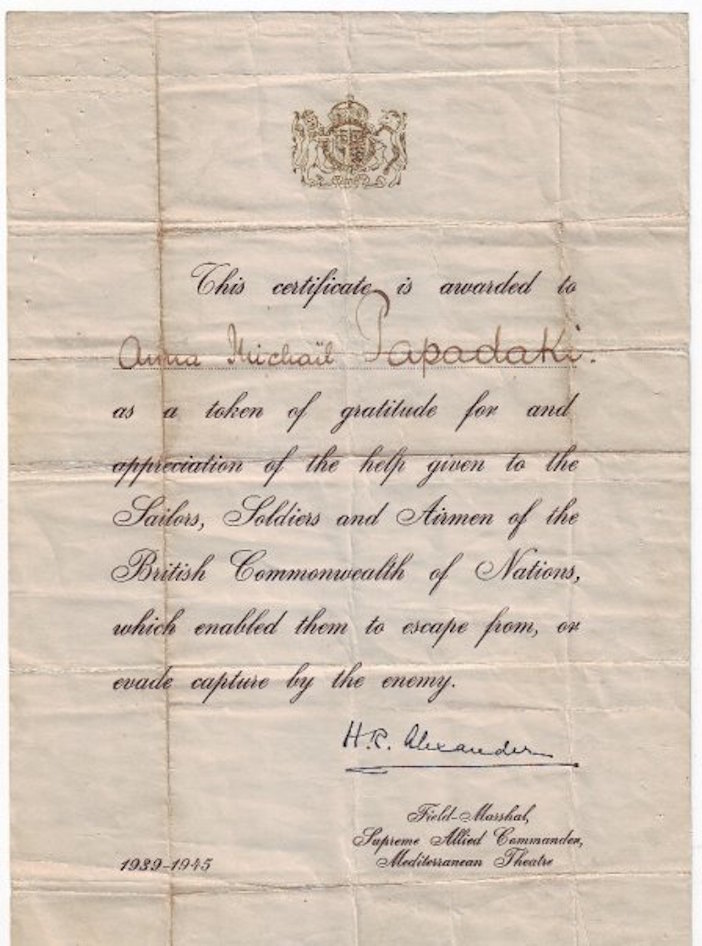 This certificate is awarded to
Anna Michaïl Papadaki.
as a token of gratitude for and
appreciation of the help given to the
Sailors, Soldiers and Airmen of the
British Commonwealth of Nations,
which enabled them to escape from, or
evade capture by the enemy.
H.R. Alexander
Field-Marshal,
Supreme Allied Commander,
Mediterranean Theatre
1939-1945